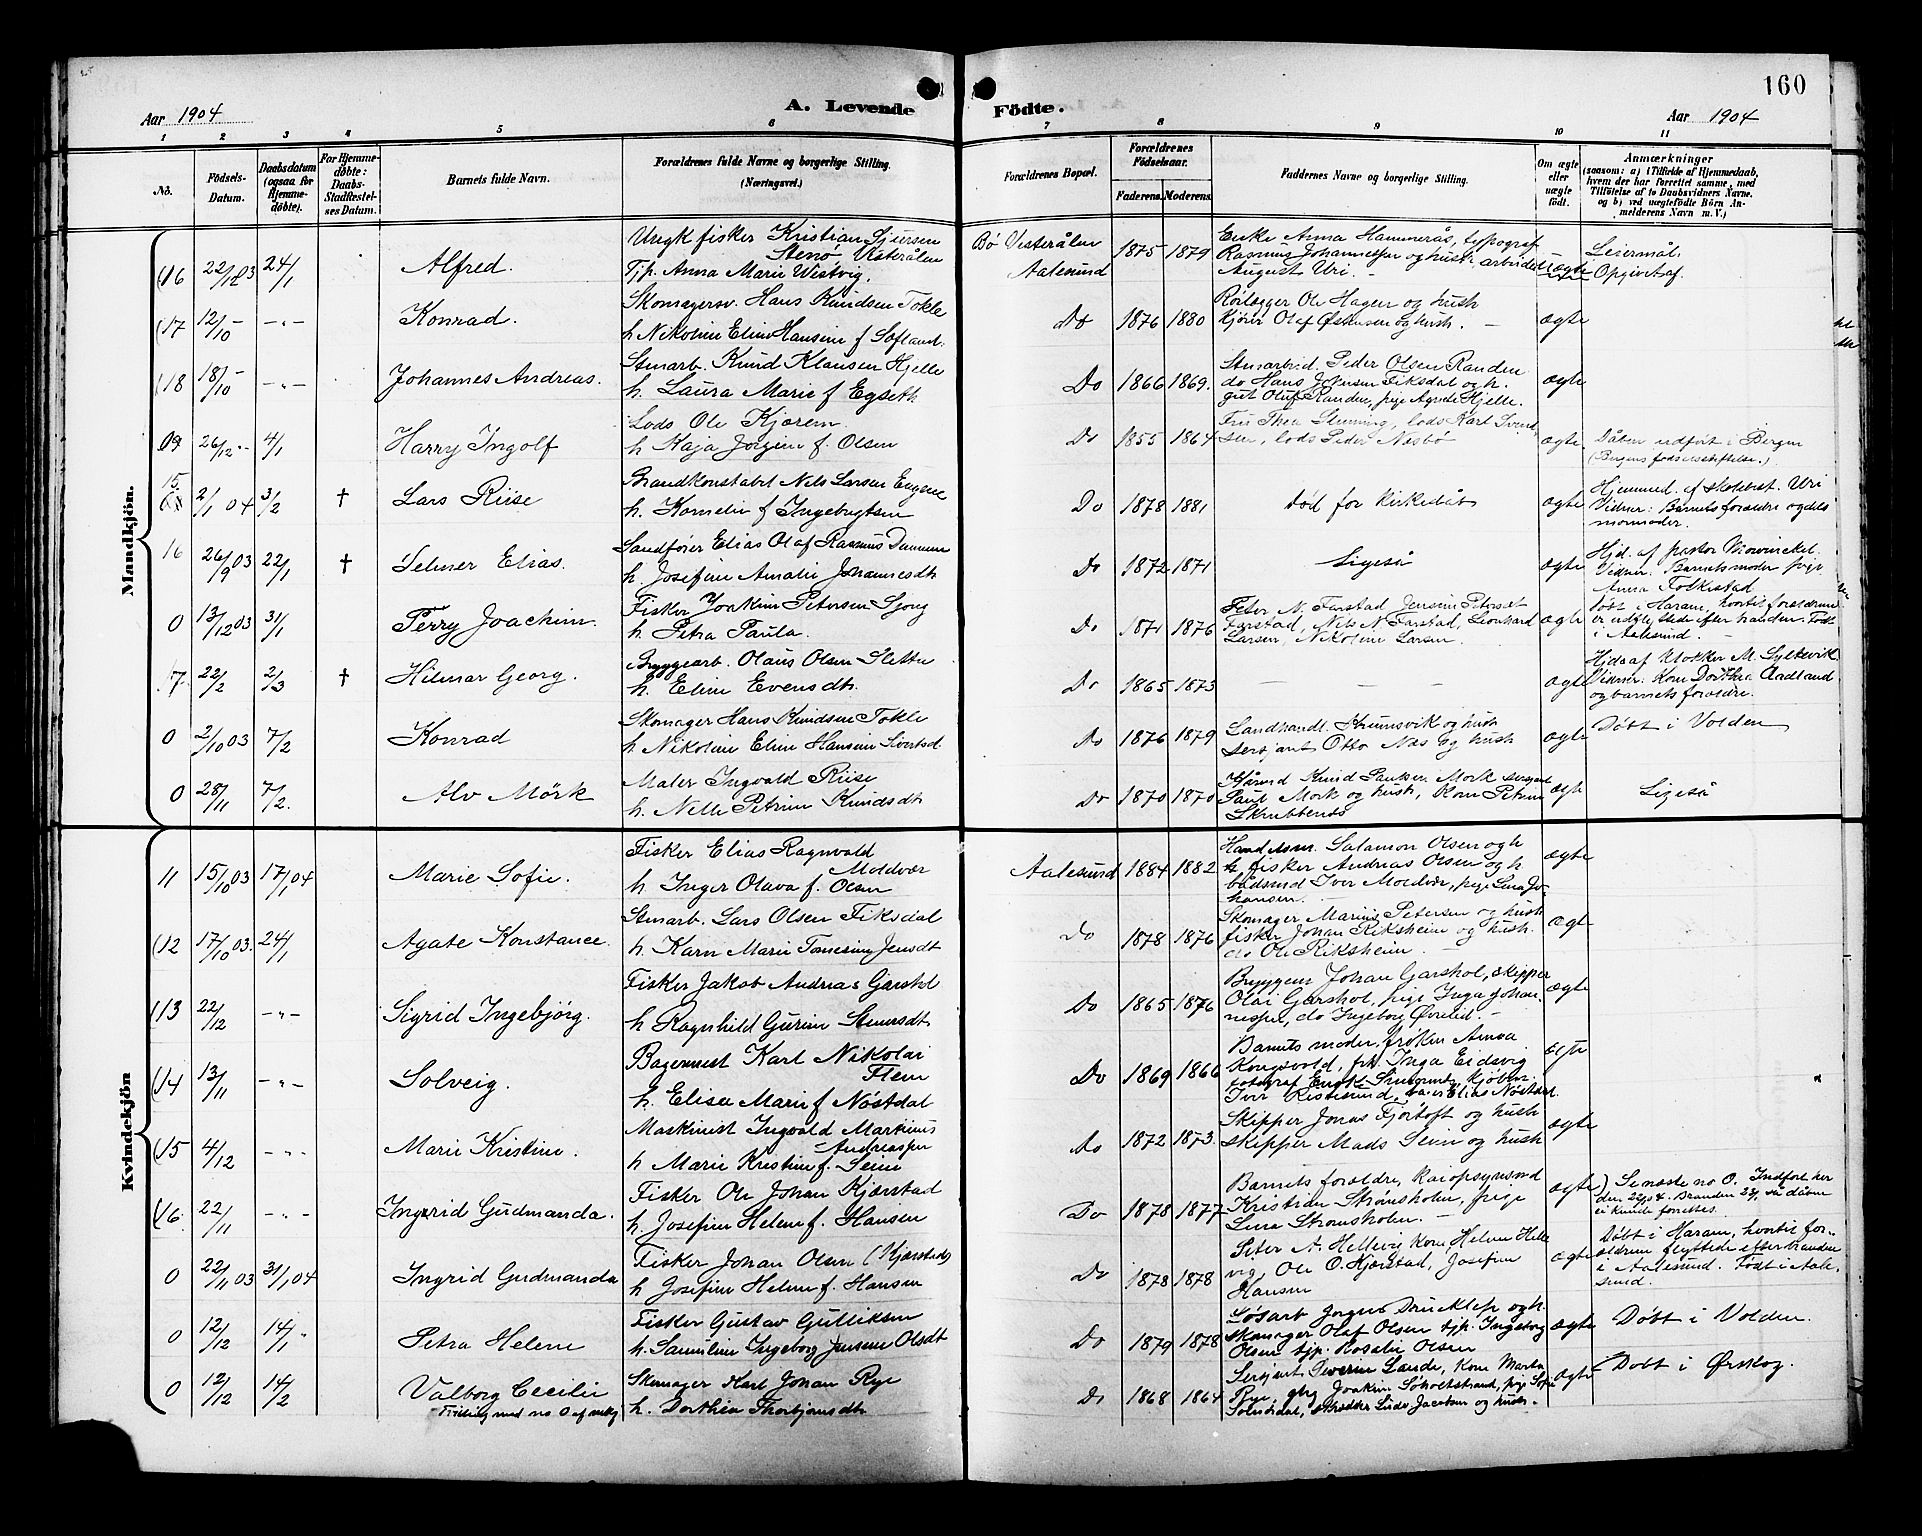 160
Aar 1904
A. Levende
Födte.
Aar 1904
1 2 3 4 5 6 7 8 9 10 11
No.
Födsels-
Datum.
Daabsdatum
(ogsaa for
Hjemme-
döbte).
For Hjemme-
döbte:
Daabs-
Stadfæstel-
ses Datum.
Barnets fulde Navn.
Forældrenes fulde Navne og borgerlige Stilling.
(Næringsvei.)
Forældrenes Bopæl.
Forældrenes
Födselsaar.
Faderens. Moderens.
Faddernes Navne og borgerlige Stilling.
Om ægte
eller
uægte
födt.
Anmærkninger
(saasom: a) i Tilfælde af Hjemmedaab,
hvem der har forrettet samme, med
Tilföielse af to Daabsvidners Navne,
og b) ved uægtefödte Börn An-
melderens Navn m. V.)
Mandkjön.
(16 22/12 03 24/1 Alfred.
Ungk fisker Kristian Sjursen
Stenö Vesterålen
Tjp. Anna Marie Westvig.
Bø Vesterålen
Aalesund
1875 1879
Enke Anna Hammerås, typograf
Rasmus Johannessen og hust. arbeider
August Uri. –
uægte
Leiermål.
Opgivet af
(17 12/10 – –"– Konrad.
Skomagersv. Hans Knudsen Tokle
h Nikoline Eline Hansine f Søfland.
Do 1876 1880
Rörlægger Ole Hagen og hust
kjörer Olaf Østensen og hust. –
ægte
(18 18/10 – –"– Johannes Andreas.
Stenarb. Knud Klausen Hjelle
h. Laura Marie f Egseth
Do 1866 1869.
Stenarbeid. Peder Olsen Randen
do Hans Johnsen Fiksdal og h.
gut Oluf Randen, pige Agnete Hjelle.
ægte
09 26/12 – 4/1 Harry Ingolf
Lods Ole Kjærem
h Kaja Jörgine f. Olsen
Do 1855 1864
Fru Thea Flemming, lods Karl Svend
sen, lods Peder Nesbö
ægte
Dåben udført i Bergen
(Bergens fødselsstiftelse.)
15. 2/1 04 3/2 † Lars Riise
Brandkonstabel Nils Larsen Engene
h. Kornelie f Ingebrigtsen
Do 1878 1881
Død før kirkedåb
ægte
Hjemmed. af skolebest. Uri
Vidner: Barnets forældre og dets
mormoder.
16 26/9 03 22/1 † Selmer Elias.
Sandförer Elias Olaf Rasmus
h. Josefine Amalie Johannesdt
Do 1872 1871
Ligeså
ægte
Hjd. af pastor Mowinckel.
Vidner: Barnets moder, pige
Anna Folkestad
0 13/12 03 31/1 Perry Joachim.
Fisker Joakim Petersen Sjong
h. Petra Paula.
Do 1871 1876
Peter N. Farstad, Jensine Peterset
Farstad, Nels N Farstad, Leonhard
Larsen, Nikoline Larsen.
ægte
Døbt i Haram, hvortil forældrene
er udflyttede efter branden. Født
i Aalesund. –
17. 22/2 2/3 † Hilmar Georg.
Bryggearb. Olaus Olsen Slette
h. Eline Evensdt.
Do 1865 1873
– – –
ægte
Hjd. af klokker M. Syltevik
Vidner: Kone Dorthea Aadland
og barnets forældre.
0 2/10 03 7/2 Konrad
Skomager Hans Knudsen Tokle
h Nikoline Eline Hansine Sivertsd.
do 1876 1879
Landhandl. Krumsvik og hust
sersjant Otto Næs og hust
ægte
Døbt i Volden
0 28/11 7/2. Alv Mörk
Maler Ingvald Riise
h. Nelle Petrine Knudsdt.
Do 1870 1870
Gårmd Knud Paulsen Mork sersjant
Paul Mork og hust, Kone Petrine
Skrubbenæs
ægte
Ligeså
Kvindekjön
11 15/10 03 17/1 04 Marie Sofie.
Fisker Elias Ragnvald
Moldvær
h Inger Olava f. Olsen
Aalesund 1884 1882
Handelsm. Salamon Olsen og h
h, fisker Andreas Olsen og h
bådsmd Iver Moldvær, pige Lina Jo-
hansen. –
ægte
(12 17/10 03. 24/1 Agate Konstance.
Stenarb. Lars Olsen Fiksdal
h. Karn Marie Tomasine Jensdt
Do 1878 1876
Skomager Marius Petersen og hust
fisker Johan Riksheim og hust.
do Ole Riksheim –
ægte
(13 22/12 –"– Sigrid Ingebjørg.
Fisker Jakob Andreas Garshol
h Ragnhild Gurine Stenersdt.
Do 1865 1876
Bryggem. Johan Garshol, skipper
Olai Garshol, pige Inga Johan-
nesen, do Ingeborg Øvrelid. –
ægte
(14 13/11 –"– Solveig.
Bagermest Karl Nikolai
Flem
h. Elise Marie f Nöstdal
Do 1869 1866
Barnets moder, frøken Anna
Kongsvold, frk. Inga Eidsvig
fotograf Smegrund, kjøbm.
Iver Ristesund, Elias Nöstdal.
ægte
(15 4/12 –"– Marie Kristine.
Maskinist Ingvald Markines
Andreassen
h Marie Kristine f. Seim
do 1872 1873.
Skipper Jonas Fjørtoft og hust
skipper Mads Seim og hust
ægte
(16. 22/11 –"– Ingrid Gudmanda.
Fisker Ole Johan Kjærstad
h. Josefine Helene f. Hansen
Do 1878 1877
Barnets forældre, kaiopsynsmd
Kristian Strømsholm, pige
Lina Strømsholm. –
ægte
) Se næste no 0. Indført her
den 22/1 04. Branden 23/1 så dåben
ei kunde forrettes.
0 22/11 03 31/1 04 Ingrid Gudmanda
Fisker Johan Olsen (Kjærstad)
h Josefine Helene f. Hansen
Do 1878 1878
Peter A. Hellevig kone, Helene Helle
vig, Ole O. Kjærstad, Josefine
Hansen
ægte
Døbt i Haram, hvortil for-
ældrene flyttede efter branden
i Aalesund. Født i Aale-
sund.
0 12/12 14/1 " Petra Helene
Fisker Gustav Gulliksen
h. Samuline Ingeborg Jensine Olsdt
Do 1879 1878
Løsarb Jörgen og h.
Skomager Olaf Olsen tjp. Ingeborg
Olsen tjp. Rosalie Olsen
ægte
Døbt i Volden.
0 12/12 14/2 Valborg Cecilie
Tvilling med no 0
Skomager Karl Johan Rye
h. Dorthea Thorbjørnsdt.
Do 1868 1864
Sersjant Severin Lande, kone Marta
Rye, gbg Joakim Søholtstrand, pige Sofie
Solnørdal, skrædder Jacobsen og hust. –
ægte
Døbt i Ørskog.